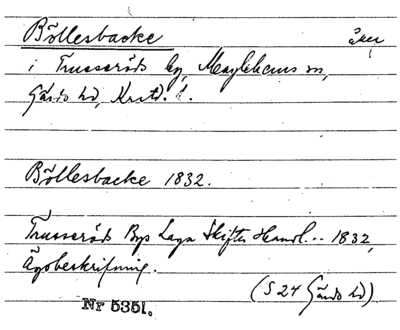 Böllesbacke åker
i Trusseröds by, Maglehems sn,
Gärds hd, Krist. l.
Böllesbacke 1832.
Trusseröds Bys Laga Skiftes Handl... 1832,
Ägobeskrifning.
(S 24 Gärds hd)
Nr 5351.